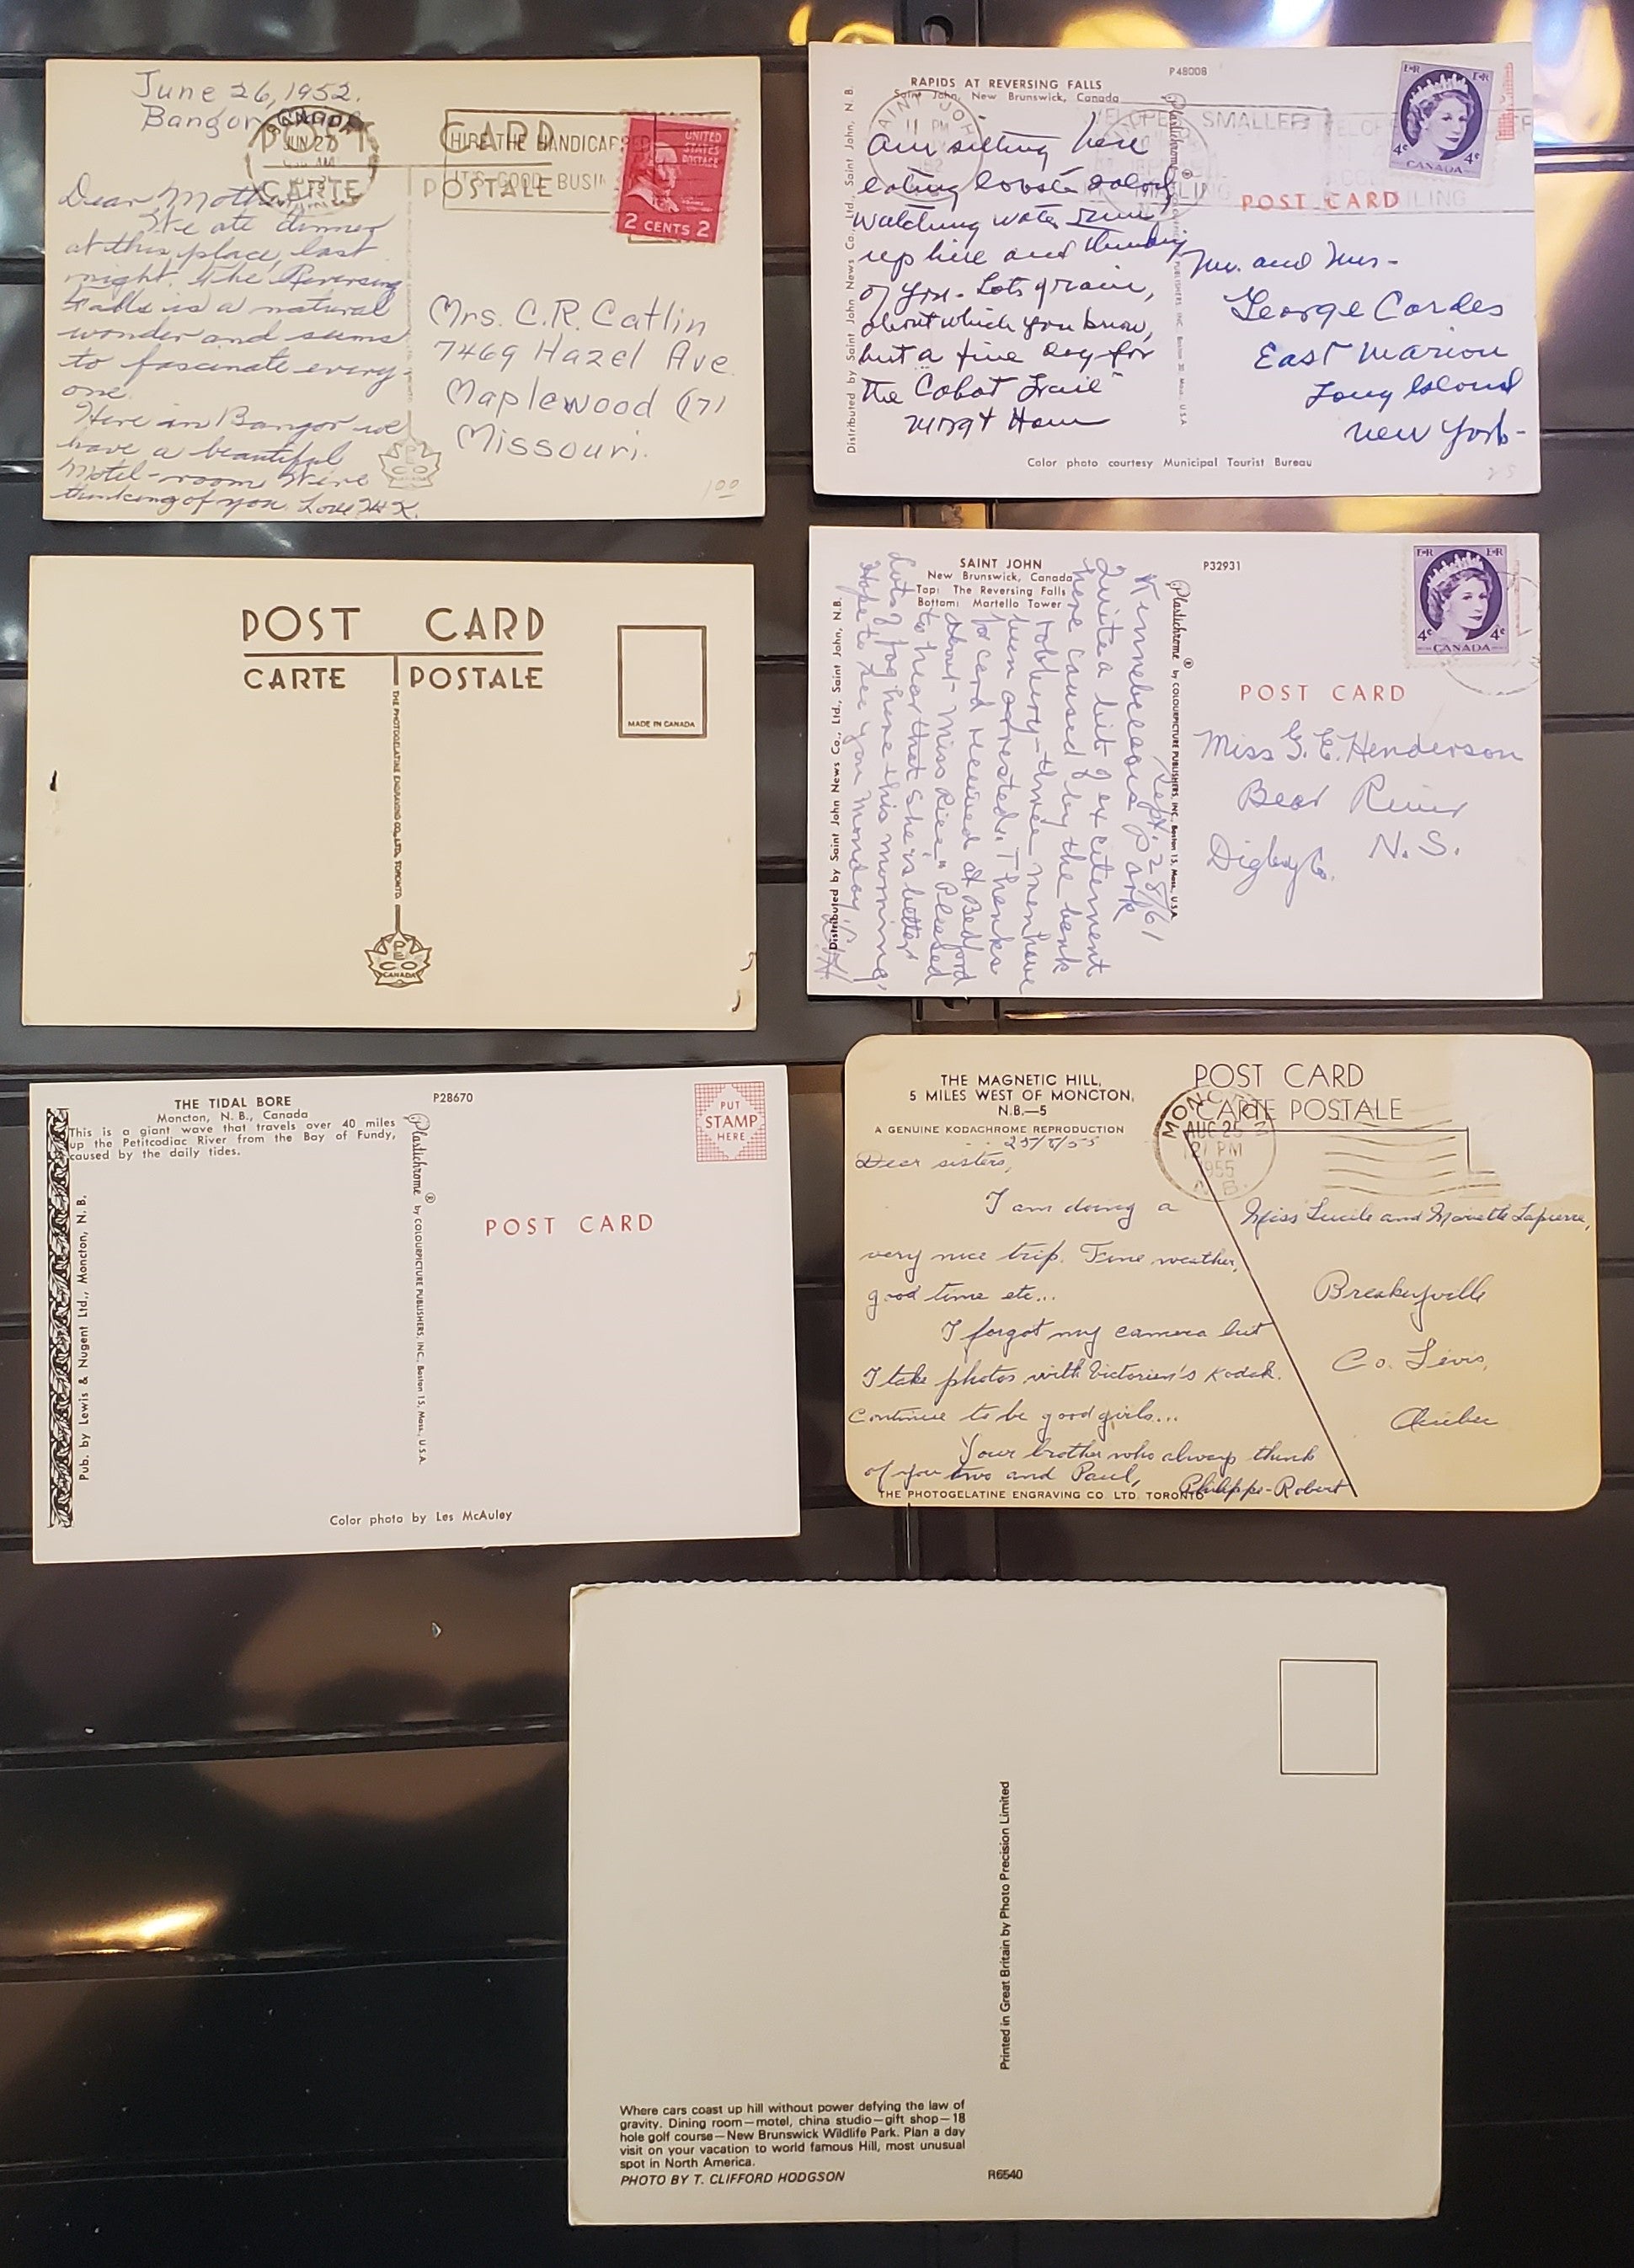 June 26, 1952.
Bangor
POST CARD
CARTE POSTALE
BANGOR
JUN 27
HIRE THE HANDICAPPED
IT'S GOOD BUSIN
UNITED
STATES
POSTAGE
2 CENTS 2
Dear Mother
We ate dinner
at this place, last
night. The Reversing
Falls is a natural
wonder and seems
to fascinate every-
one.
Here in Bangor we
have a beautiful
Motel-room. We're
thinking of you. Love
Mrs. C.R. Catlin
7469 Hazel Ave.
Maplewood (17)
Missouri.
PECO
1 00
RAPIDS AT REVERSING FALLS
Saint John, New Brunswick, Canada
P48008
SAINT JOHN
11 PM
SMALLER
MAILING
E R E R
4c 4c
CANADA
POST CARD
Am sitting here
eating lobster salad,
watching water run
up hill and thinking
of you. Lots of rain,
about which you know,
but a fine day for
the "Cabot Trail"
Mr. and Mrs-
George Cordes
East Marion
Long Island
New York-
Distributed by Saint John News Co., Ltd., Saint John, N. B.
Plastichrome ® by COLOURPICTURE PUBLISHERS, INC. Boston 30, Mass., U.S.A.
Color photo courtesy Municipal Tourist Bureau
25
POST CARD
CARTE POSTALE
MADE IN CANADA
THE PHOTOGELATINE ENGRAVING CO., LTD. TORONTO
PECO
CANADA
SAINT JOHN
New Brunswick, Canada
Top: The Reversing Falls
Bottom: Martello Tower
P32931
E R E R
4c 4c
CANADA
POST CARD
Sept. 28/61
Kennebecasis Park
Quite a bit of excitement
here caused by the bank
robbery - three men have
been arrested. Thanks
for card received at Bedford
about "Miss Rice". Pleased
to hear that she is better
Lots of fog here this morning,
Hope to see you Monday,
Miss G. E. Henderson
Bear River
Digby Co. N.S.
Distributed by Saint John News Co., Ltd., Saint John, N.B.
Plastichrome ® by COLOURPICTURE PUBLISHERS, INC., Boston 15, Mass., U.S.A.
THE TIDAL BORE
Moncton, N. B., Canada
This is a giant wave that travels over 40 miles
up the Petitcodiac River from the Bay of Fundy,
caused by the daily tides.
P28670
PUT
STAMP
HERE
POST CARD
Pub. by Lewis & Nugent Ltd., Moncton, N. B.
Plastichrome ® by COLOURPICTURE PUBLISHERS, INC., Boston 15, Mass., U.S.A.
Color photo by Les McAuley
THE MAGNETIC HILL,
5 MILES WEST OF MONCTON,
N.B.—5
A GENUINE KODACHROME REPRODUCTION
POST CARD
CARTE POSTALE
MONCTON
AUC 25
21 PM
1955
N. B.
25/8/55
Dear sisters,
I am doing a
very nice trip. Fine weather,
good time etc...
I forgot my camera but
I take photos with Victorien's Kodak.
Continue to be good girls...
Your brother who always think
of you two and Paul,
Philippe-Robert
Miss Lucile and Mariette Lapierre,
Breakeyville
Co. Lévis,
Québec
THE PHOTOGELATINE ENGRAVING CO. LTD. TORONTO
Printed in Great Britain by Photo Precision Limited
Where cars coast up hill without power defying the law of
gravity. Dining room—motel, china studio—gift shop—18
hole golf course—New Brunswick Wildlife Park. Plan a day
visit on your vacation to world famous Hill, most unusual
spot in North America.
PHOTO BY T. CLIFFORD HODGSON
R6540